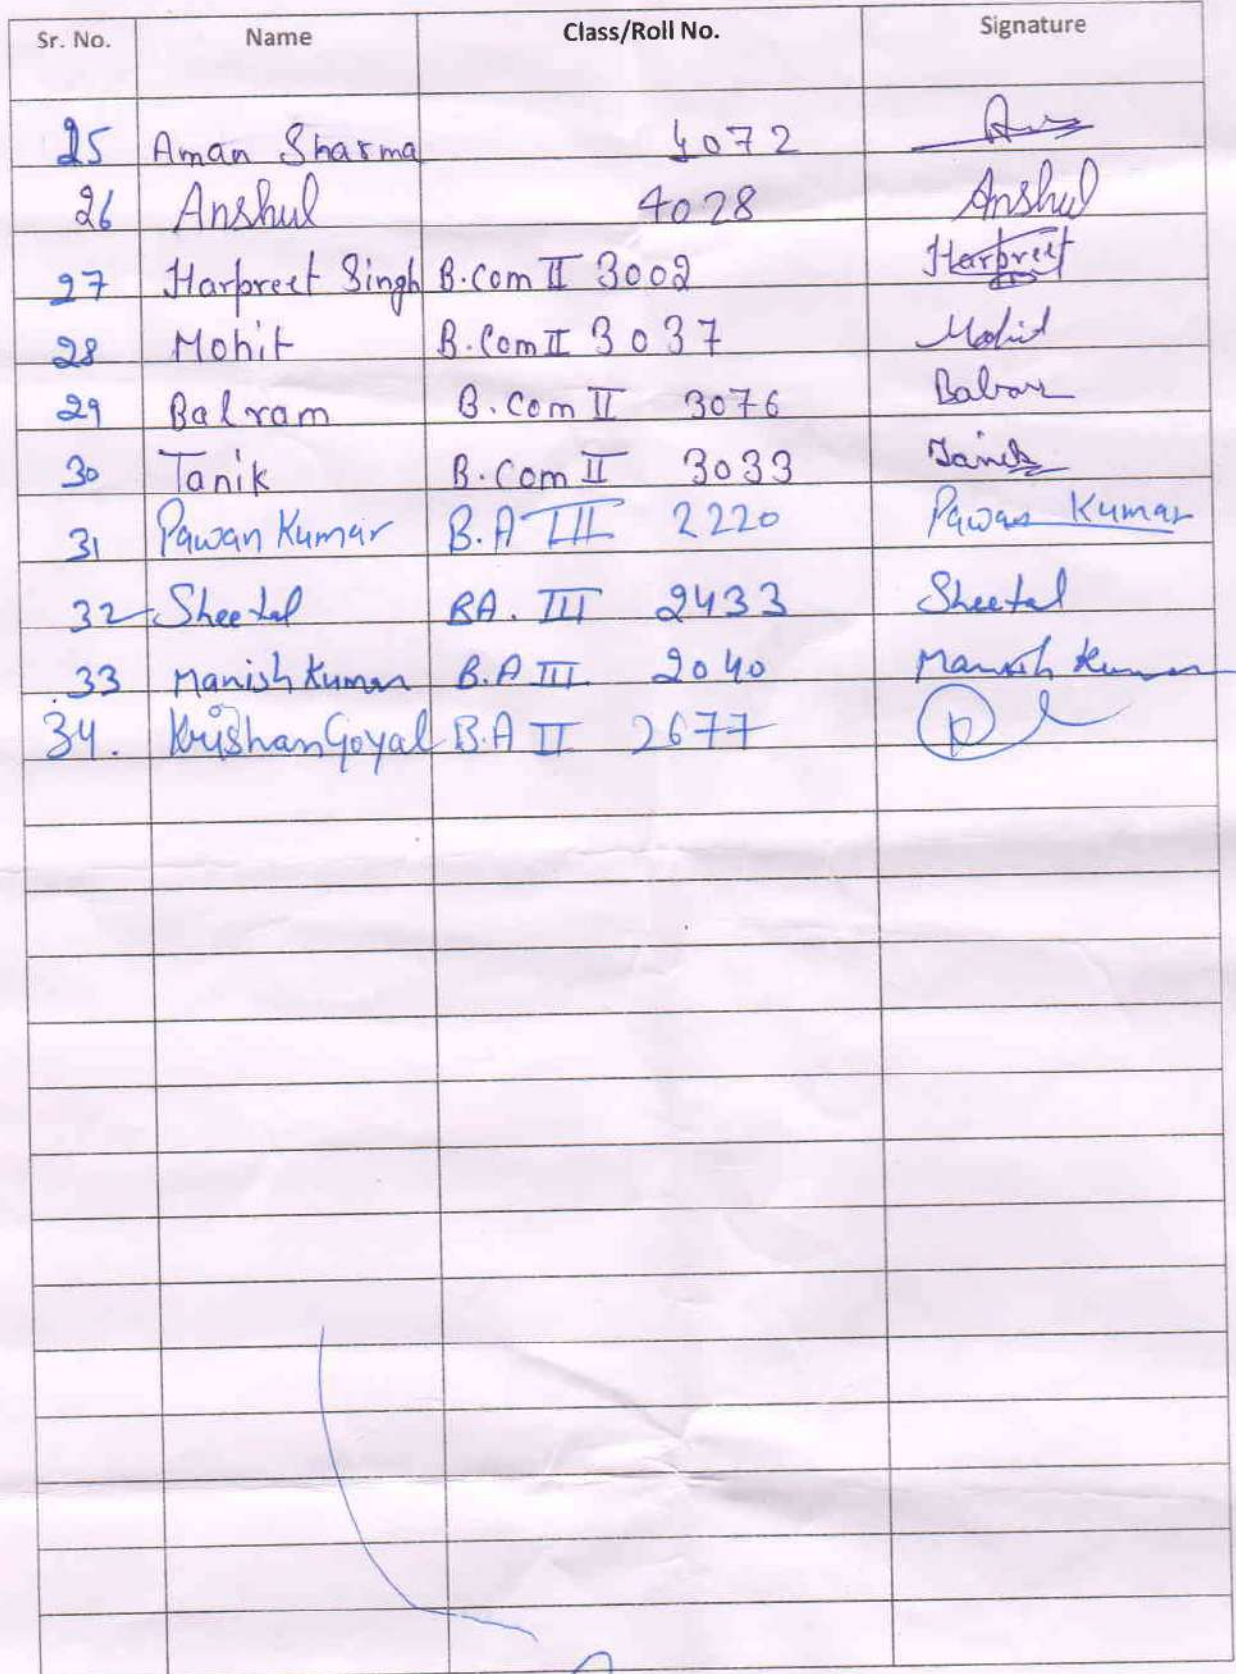 Sr. No. Name Class/Roll No. Signature
25 Aman Sharma 4072
26 Anshul 4028 Anshul
27 Harpreet Singh B.Com II 3002 Harpreet
28 Mohit B.Com II 3037 Mohit
29 Balram B.Com II 3076
30 Tanik B.Com II 3033 Tanik
31 Pawan Kumar B.A III 2220 Pawan Kumar
32 Sheetal BA. III 2433 Sheetal
33 Manish Kumar B.A III 2040 Manish Kumar
34. Krishan Goyal B.A II 2677